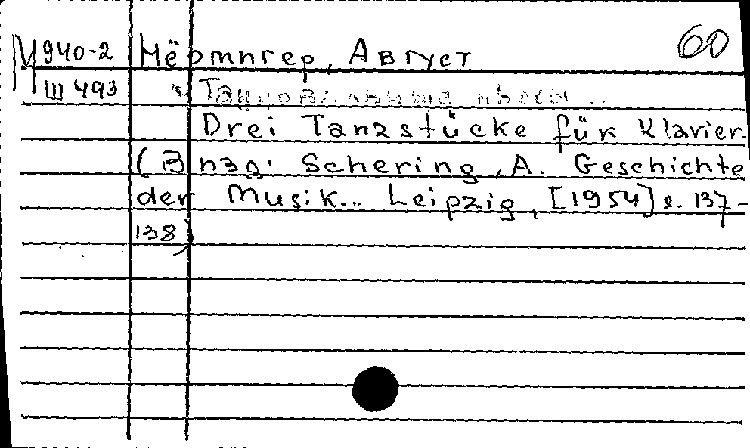 М 940-2 Нёрмигер, Август 60
Ш 493
Drei Tanzstücke für Klavier
(В изд. Schering, A. Geschichte
der Musik... Leipzig, [1954] с. 137-
138)